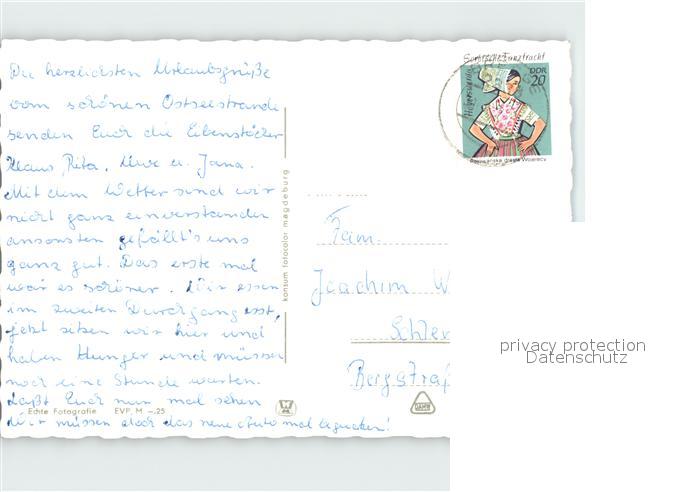 Die herzlichsten Urlaubsgrüße
vom schönen Ostseestrande
senden Euch die Eibenstöcker
Klaus, Rita, Uwe u. Jana.
Mit dem Wetter sind wir
nicht ganz einverstanden
ansonsten gefällt's uns
ganz gut. Das erste mal
war es schöner. Wir essen
im zweiten Durchgang erst,
jetzt sitzen wir hier und
haben Hunger und müssen
noch eine Stunde warten.
Laßt Euch nun mal sehen
Wir müssen doch das neue Auto mal begucken!
Echte Fotografie EVP M -.25
konsum fotocolor magdeburg
Sorbische Tanztracht
Hoyerswerda
DDR
20
Serbska drasta Wojerecy
Fam.
Joachim W
Schle
Bergstraß
privacy protection
Datenschutz